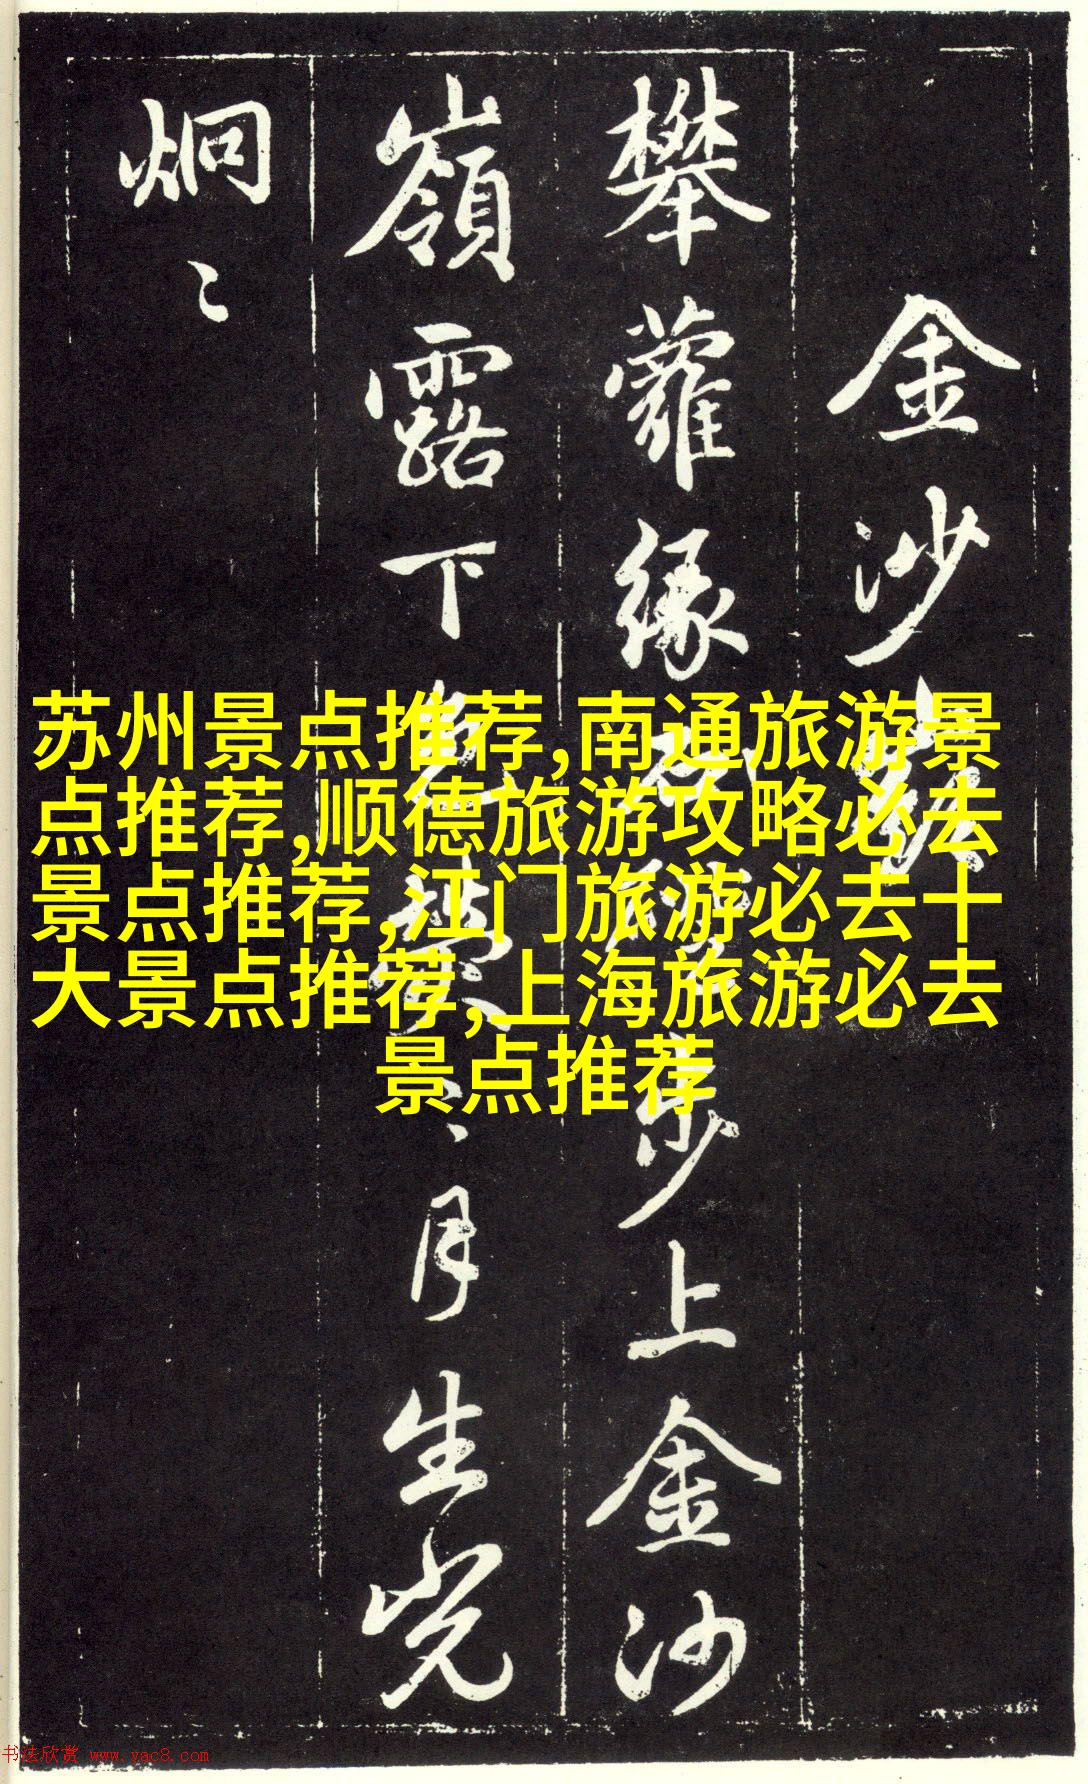 金沙
攀蘿緣步上金沙
嶺露下月生光
炯々
苏州景点推荐,南通旅游景
点推荐,顺德旅游攻略必去
景点推荐,江门旅游必去十
大景点推荐,上海旅游必去
景点推荐
书法欣赏 www.yac8.com